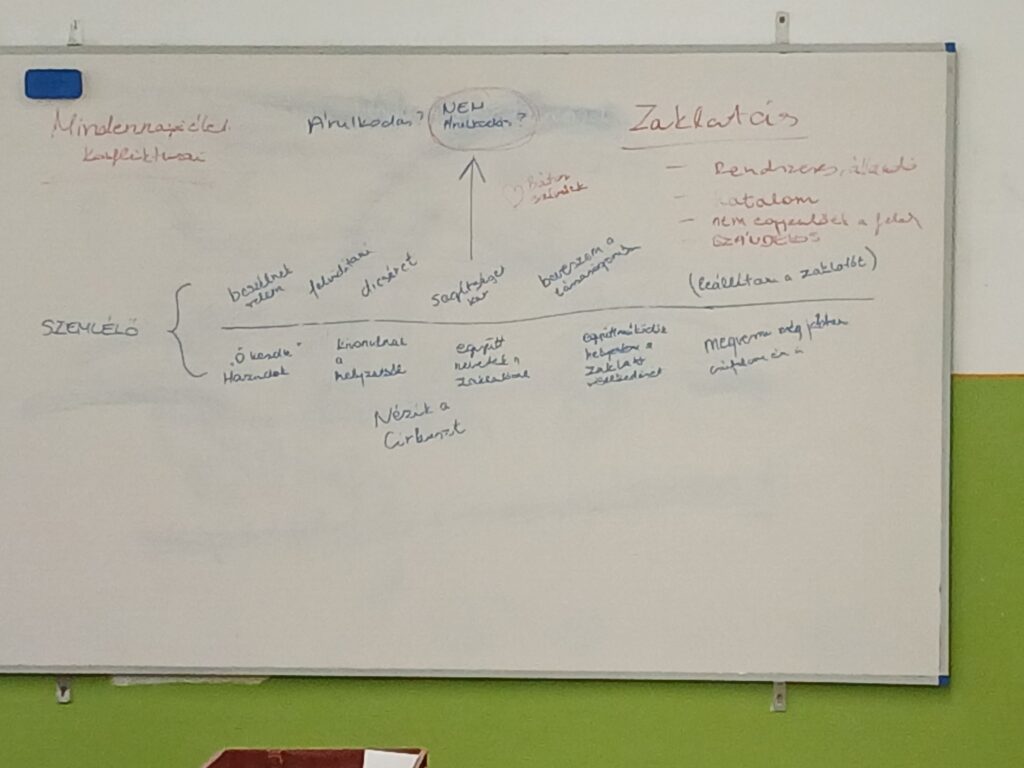 Mindennapi élet
konfliktusai
Árulkodás?
NEM
Árulkodás?
Zaklatás
- Rendszeres, állandó
- hatalom
- nem egyenlőek a felek
- SZÁNDÉKOS
Bátor
szívűek
SZEMLÉLŐ
beszélnek
velem
felvidítani
dicséret
segítséget
kér
beveszem a
társaságomba
(leállítani a zaklatót)
"Ő kezdte"
Hazudok
kivonulnak
a
helyzetből
együtt
nevetek a
zaklatóval
együttműködik
helyesli a
zaklató
viselkedését
megverni még jobban
Nézik a
Cirkuszt